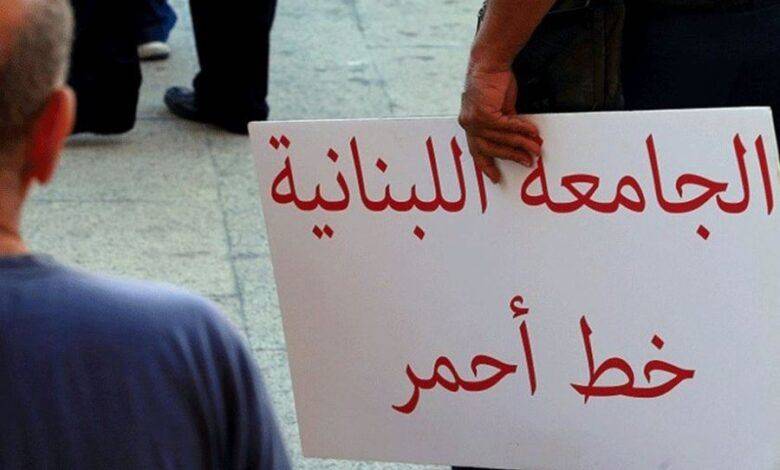 الجامعة اللبنانية
خط أحمر